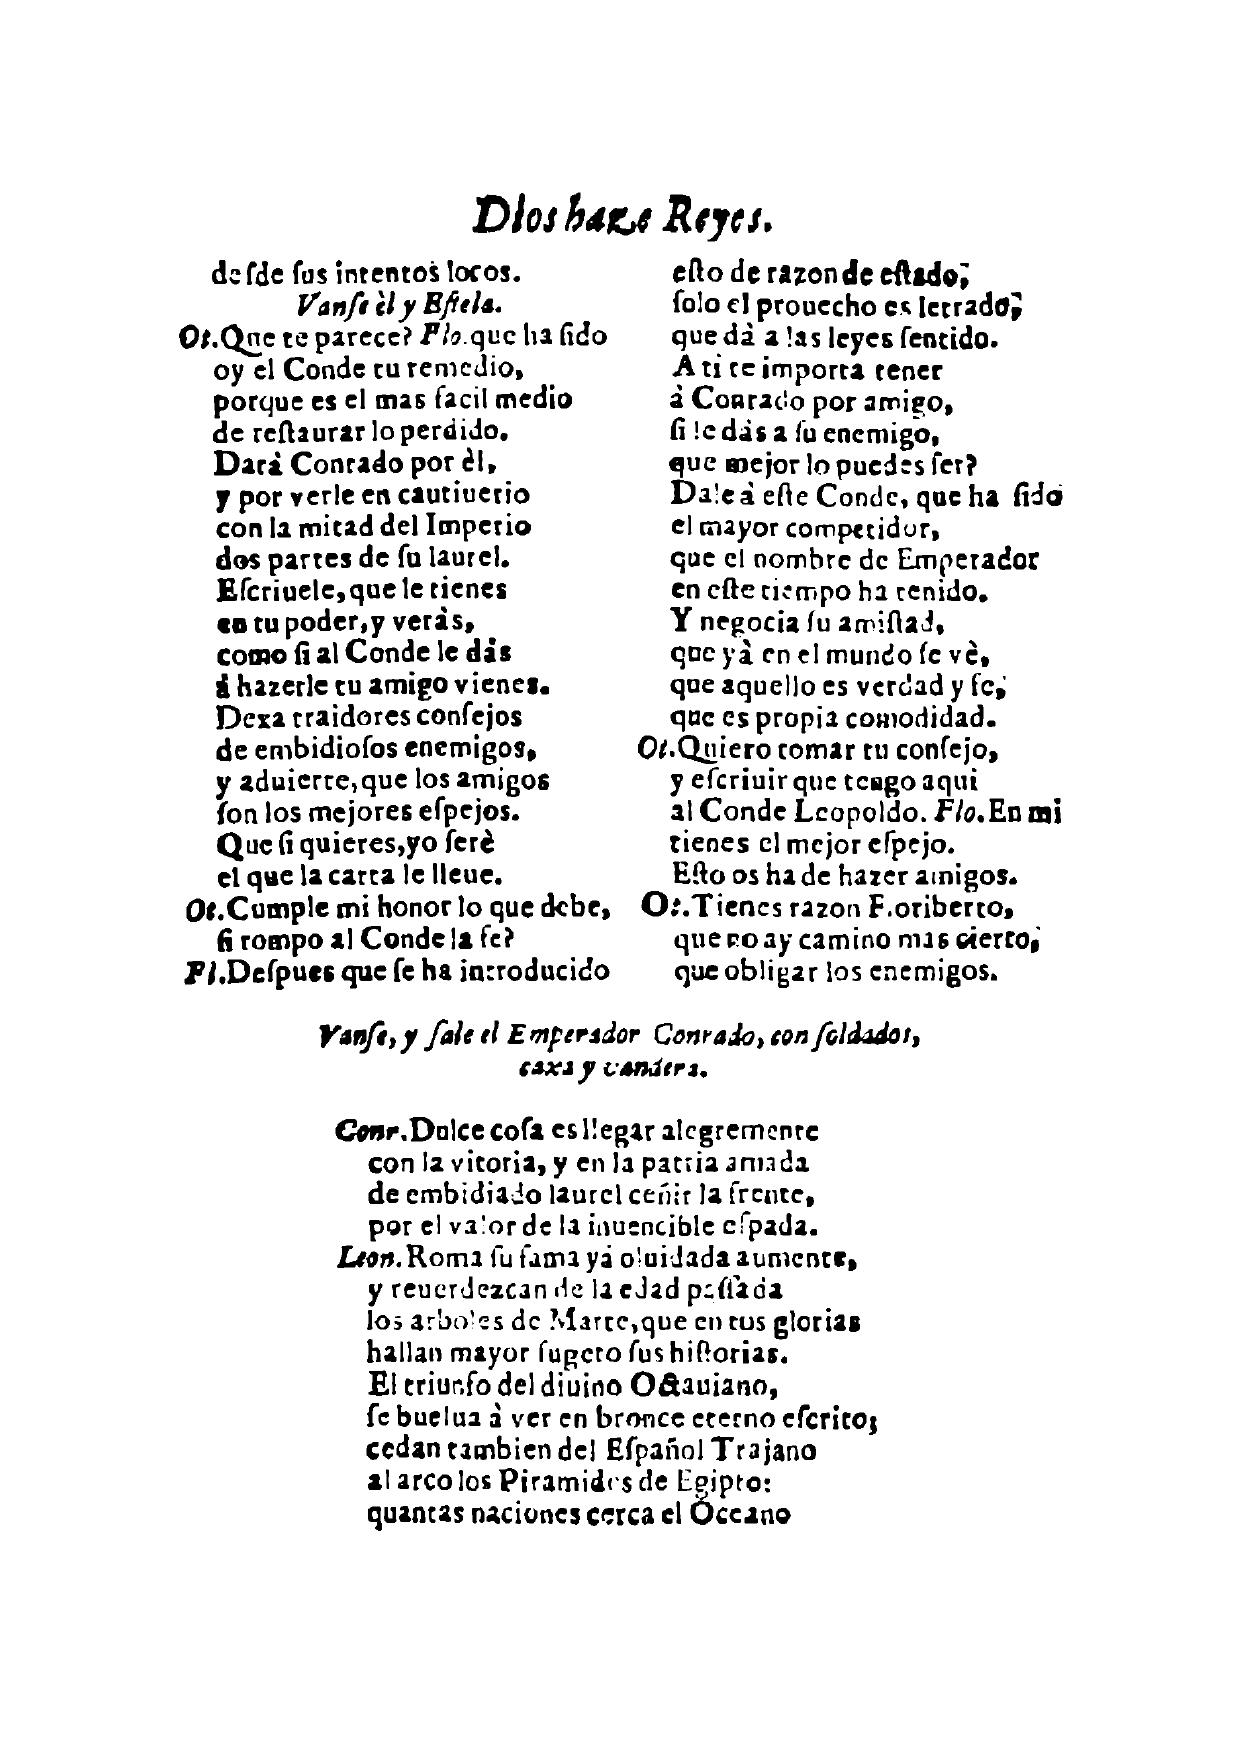 Dios haze Reyes.
desde sus intentos locos.
Vanse èl y Estela.
Ot.Que te parece? Flo.que ha sido
oy el Conde tu remedio,
porque es el mas facil medio
de restaurar lo perdido.
Darà Conrado por èl,
y por verle en cautiuerio
con la mitad del Imperio
dos partes de su laurel.
Escriuele, que le tienes
en tu poder, y veràs,
como si al Conde le dás
á hazerle tu amigo vienes.
Dexa traidores consejos
de embidiosos enemigos,
y aduierte, que los amigos
son los mejores espejos.
Que si quieres, yo serè
el que la carta le lleue.
Ot.Cumple mi honor lo que debe,
si rompo al Conde la fe?
Fl.Despues que se ha introducido
esto de razon de estado,
solo el prouecho es letrado,
que dá a las leyes sentido.
A ti te importa tener
à Conrado por amigo,
si le dás a su enemigo,
que mejor lo puedes ser?
Dale à este Conde, que ha sido
el mayor competidor,
que el nombre de Emperador
en este tiempo ha tenido.
Y negocia su amistad,
que yà en el mundo se vè,
que aquello es verdad y fe,
que es propia comodidad.
Ot.Quiero tomar tu consejo,
y escriuir que tengo aqui
al Conde Leopoldo. Flo.En mi
tienes el mejor espejo.
Esto os ha de hazer amigos.
Ot.Tienes razon Floriberto,
que no ay camino mas cierto,
que obligar los enemigos.
Vanse, y sale el Emperador Conrado, con soldados,
caxa y vandera.
Conr.Dulce cosa es llegar alegremente
con la vitoria, y en la patria amada
de embidiado laurel ceñir la frente,
por el valor de la inuencible espada.
Leon.Roma su fama yá oluidada aumente,
y reuerdezcan de la edad passada
los arboles de Marte, que en tus glorias
hallan mayor sugeto sus historias.
El triunfo del diuino Octauiano,
se buelua à ver en bronce eterno escrito;
cedan tambien del Español Trajano
al arco los Piramides de Egipto:
quantas naciones cerca el Oceano